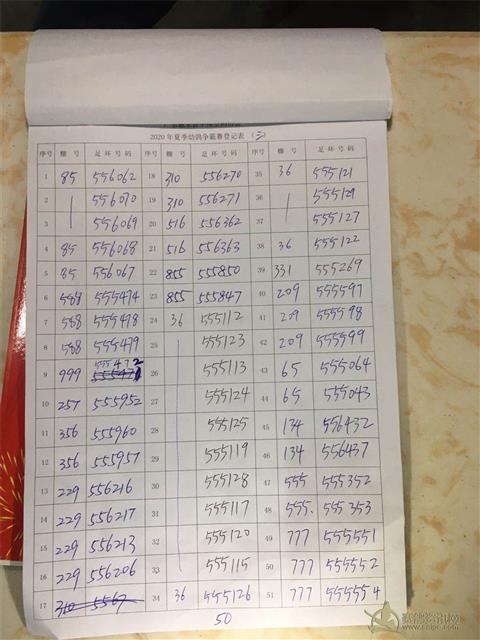 2020年夏季幼鸽争霸赛登记表（三）
序号 棚号 足环号码 序号 棚号 足环号码 序号 棚号 足环号码
1 85 556062 18 310 556270 35 36 555121
2 556070 19 310 556271 36 555129
3 556069 20 516 556362 37 555127
4 85 556068 21 516 556363 38 36 555122
5 85 556067 22 855 555850 39 331 555269
6 588 555474 23 855 555847 40 209 555597
7 588 555478 24 36 555112 41 209 555598
8 588 555479 25 555123 42 209 555599
9 999 555472 26 555113 43 65 555064
10 257 555952 27 555124 44 65 555043
11 356 555960 28 555125 45 134 556432
12 356 555957 29 555119 46 134 556437
13 229 556216 30 555128 47 555 555352
14 229 556217 31 555117 48 555. 555353
15 229 556213 32 555120 49 777 555551
16 229 556206 33 555115 50 777 555552
17 310 5567 34 36 555126 51 777 555554
50